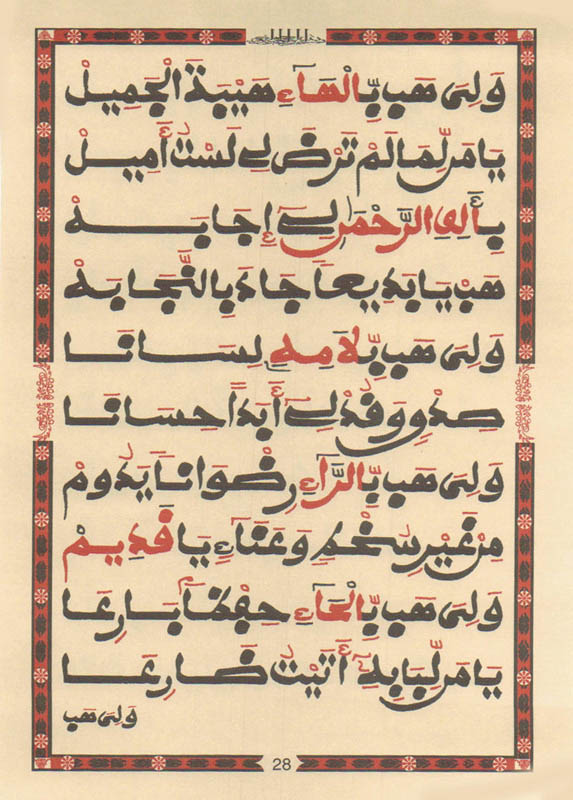 وَلِىَ هَب بِّالْهَاءِ هَيْبَةَ الْجَمِيلْ
يَا مَن لِّمَا لَمْ تَرْضَ لِي لَسْتُ أَمِيلْ
بِأَلِفِ الرَّحْمَٰنِ لِي إِجَابَهْ
هَبْ يَا بَدِيعًا جَادَ بِالنَّجَابَهْ
وَلِىَ هَب بِّلَامِهِ لِسَانَا
صِدْقٍ وَقُدْ لِي أَبَدًا حِسَانَا
وَلِىَ هَب بِّالرَّاءِ رِضْوَانًا يَدُومْ
مِنْ غَيْرِ سُخْطٍ وَعَنَاءٍ يَا قَدِيمْ
وَلِىَ هَب بِّالْحَاءِ حِفْظًا بَارِعَا
يَا مَن لِّبَابِهِ أَتَيْتُ ضَارِعَا
وَلِىَ هَب
28